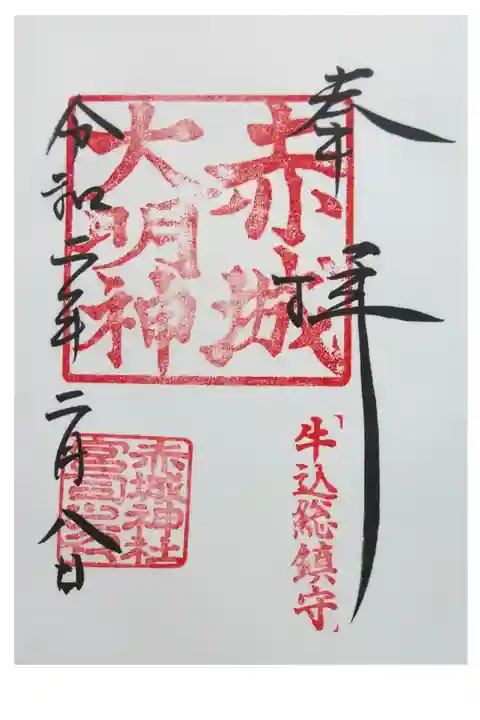 奉拝
赤城
大明神
牛込総鎮守
令和二年二月八日
赤城神社
宮司之印